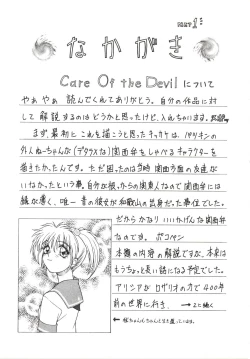 PART 1
なかがき
Care Of the Devil について
やぁやぁ 読んでくれてありがとう。自分の作品に対
して解説するのはどうかと思ったけど、入れちゃいます。
まず、最初にこれを描こうと思ったキッカケは、パツキンの
外人ねーちゃんが(デタラメな)関西弁をしゃべるキャラクターを
描きたかったんです。ただ困ったのは当時関西方面の友達が
いなかったという事。自分が根っからの関東人なので関西弁には
縁が薄く、唯一昔の彼女が和歌山の出身だった事位でした。
だからかなりいいかげんな関西弁
なのです。ポコペン
本題の内容の解説ですが、本来は
もうちょっと長い話になる予定でした。
アリシアがロザリオの力で400年
前の世界に行き、→2に続く